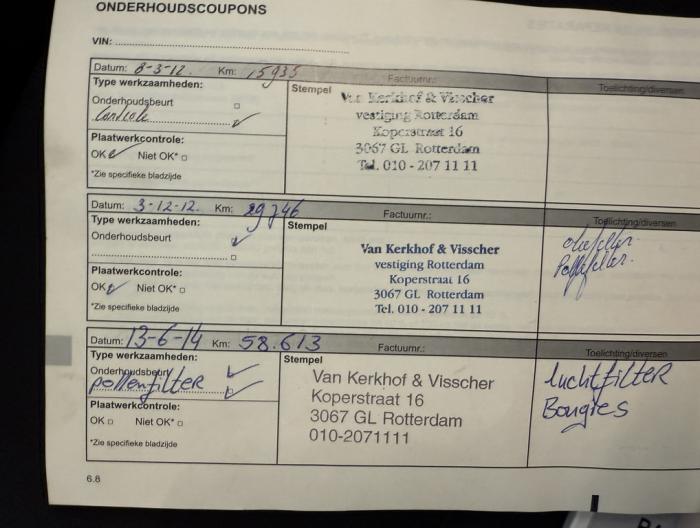 ONDERHOUDSCOUPONS
VIN:
Datum: 8-3-12. Km: 15935 Factuurnr.: Toelichting/diversen
Type werkzaamheden: Stempel
Onderhoudsbeurt
Van Kerkhof & Visscher
vestiging Rotterdam
Koperstraat 16
3067 GL Rotterdam
Tel. 010 - 207 11 11
Plaatwerkcontrole:
OK Niet OK*
*Zie specifieke bladzijde
Datum: 3-12-12. Km: 29746 Factuurnr.: Toelichting/diversen
Type werkzaamheden: Stempel
Onderhoudsbeurt
Van Kerkhof & Visscher
vestiging Rotterdam
Koperstraat 16
3067 GL Rotterdam
Tel. 010 - 207 11 11
Plaatwerkcontrole:
OK Niet OK*
*Zie specifieke bladzijde
Datum: 13-6-14 Km: 58.613 Factuurnr.: Toelichting/diversen
Type werkzaamheden: Stempel
Onderhoudsbeurt
pollenfilter
Van Kerkhof & Visscher
Koperstraat 16
3067 GL Rotterdam
010-2071111
luchtfilter
Bougies
Plaatwerkcontrole:
OK Niet OK*
*Zie specifieke bladzijde
6.8